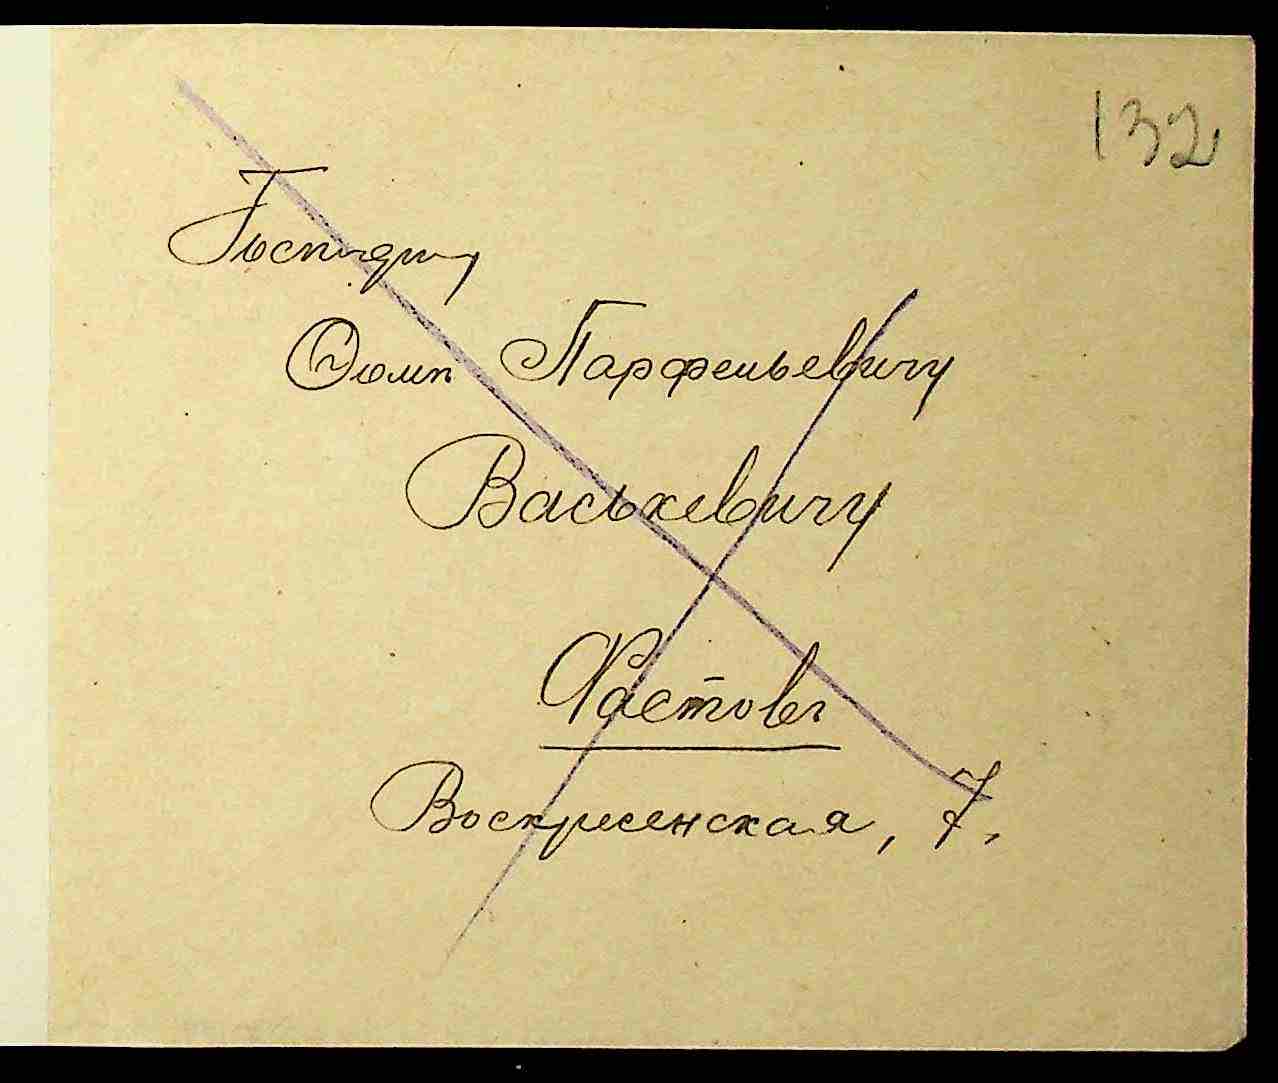 132
Господину
Ѳомѣ Парфеньевичу
Васькевичу
Фастовъ
Воскресенская, 7.